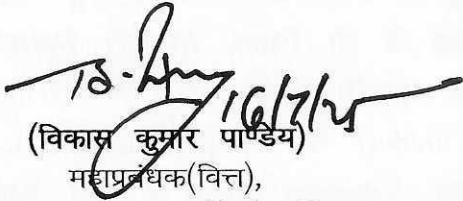 16/7/25
(विकास कुमार पाण्डेय)
महाप्रबंधक(वित्त),